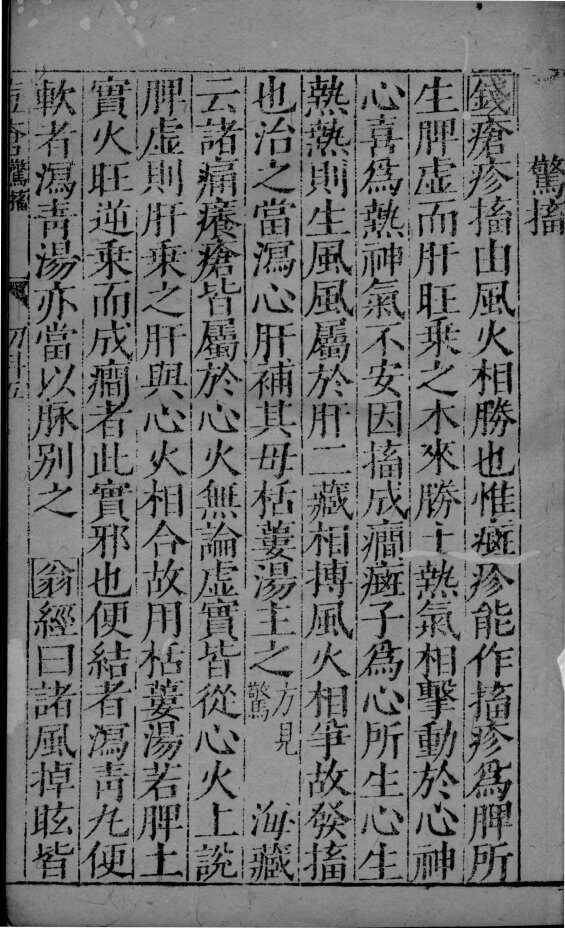 驚搐
錢瘡疹搐由風火相勝也惟瘢疹能作搐疹爲脾所
生脾虛而肝旺乗之木來勝土熱氣相擊動於心神
心喜爲熱神氣不安因搐成癇瘢子爲心所生心生
熱熱則生風風屬於肝二藏相摶風火相爭故發搐
也治之當瀉心肝補其母栝蔞湯主之 方見驚 海藏
云諸痛癢瘡皆屬於心火無論虛實皆從心火上說
脾虛則肝乗之肝與心火相合故用栝蔞湯若脾土
實火旺逆乗而成癇者此實邪也便結者瀉青丸便
軟者瀉青湯亦當以脉别之 翁經曰諸風掉眩皆
驚搐